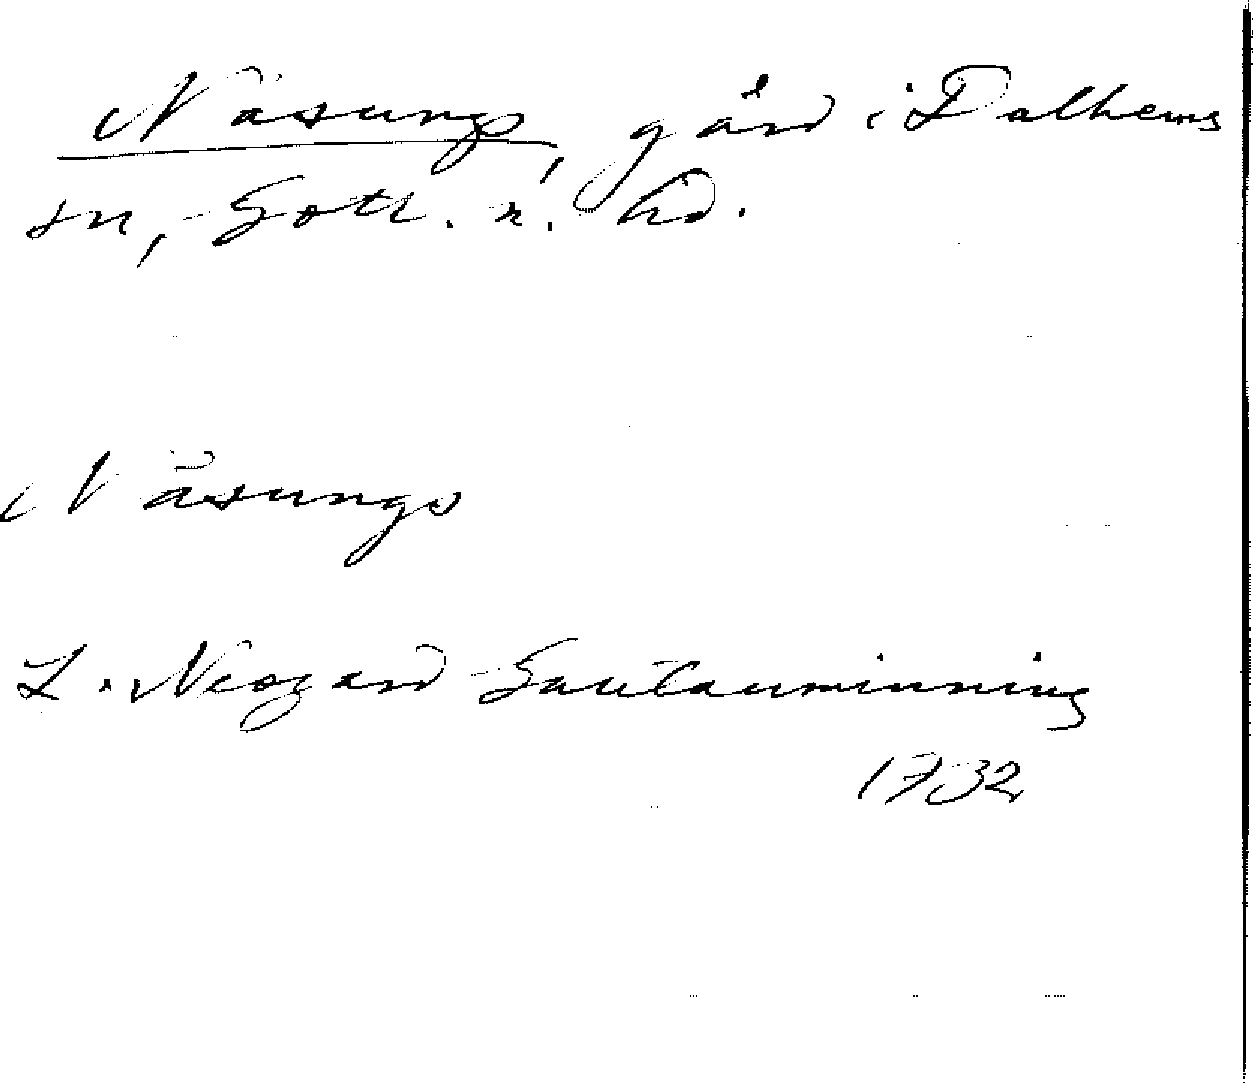 Näsungs, gård i Dalhems
sn, Gotl. n. hd.
Näsungs
L. Neogard Gautauminning
1732